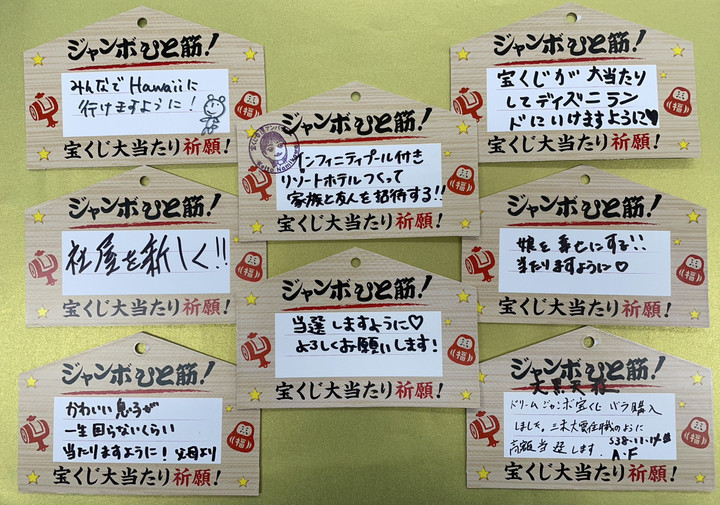 ジャンボひと筋!
みんなでHawaiiに
行けますように!
福
宝くじ大当たり祈願!
ジャンボひと筋!
宝くじが大当たり
してディズニーラン
ドにいけますように♥
福
宝くじ大当たり祈願!
ジャンボひと筋!
インフィニティプール付き
リゾートホテルつくって
家族と友人を招待する!!
福
宝くじ大当たり祈願!
ジャンボひと筋!
社屋を新しく!!
福
宝くじ大当たり祈願!
ジャンボひと筋!
娘を幸せにする!!
当たりますように♡
福
宝くじ大当たり祈願!
ジャンボひと筋!
当選しますように♡
よろしくお願いします!
福
宝くじ大当たり祈願!
ジャンボひと筋!
かわいい息子が
一生困らないくらい
当たりますように! 父母より
福
宝くじ大当たり祈願!
ジャンボひと筋!
大黒天様
ドリームジャンボ宝くじ バラ購入
しました。三木大雲住職のように
高額当選します。
S38.11.17
A.F
福
宝くじ大当たり祈願!